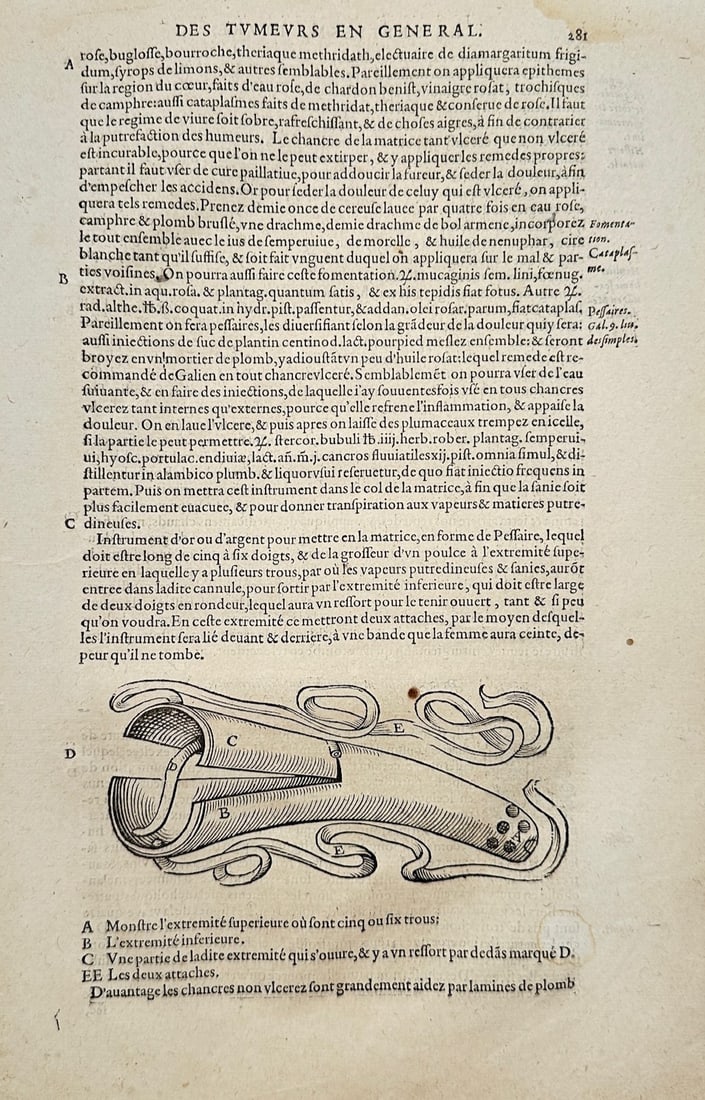 DES TVMEVRS EN GENERAL.
281
A
roſe,bugloſſe,bourroche,theriaque methridath,electuaire de diamargaritum frigi-
dum,ſyrops de limons,& autres ſemblables.Pareillement on appliquera epithemes
ſur la region du cœur,faits d'eau roſe,de chardon beniſt,vinaigre roſat, trochiſques
de camphre:auſſi cataplaſmes faits de methridat,theriaque &conſerue de roſe.Il faut
que le regime de viure ſoit ſobre,rafreſchiſſant,& de choſes aigres,à fin de contrarier
à la putrefaction des humeurs. Le chancre de la matrice tant vlceré que non vlceré
eſt incurable,pource que l'on ne le peut extirper, & y appliquer les remedes propres:
partant il faut vſer de cure paillatiue,pour addoucir la fureur,& ſeder la douleur,àfin
d'empeſcher les accidens.Or pour ſeder la douleur de celuy qui eſt vlceré,on appli-
quera tels remedes.Prenez demie once de ceruſe lauee par quatre fois en eau roſe,
camphre & plomb bruſlé,vne drachme,demie drachme de bol armene,incorporez
Fomenta-
le tout enſemble auec le ius de ſemperuiue, de morelle, & huile de nenuphar, cire
tion.
blanche tant qu'il ſuffiſe, & ſoit fait vnguent duquel on appliquera ſur le mal & par-
Cataplaſ-
B
ties voiſines. On pourra auſſi faire ceſte fomentation.♃.mucaginis ſem. lini,fœnug.
me.
extract.in aqu.roſa. & plantag.quantum ſatis, & ex his tepidis fiat fotus. Autre ♃.
rad.althe.℔.ß.coquat.in hydr.piſt.paſſentur,&addan.olei roſar.parum,fiat cataplaſ.
Peſſaires.
Pareillement on fera peſſaires,les diuerſifiant ſelon la grãdeur de la douleur qui y ſera:
Gal.9.liu.
auſſi iniections de ſuc de plantin centinod.lact.pourpied meſlez enſemble:& ſeront
deſimples.
broyez en vn mortier de plomb,y adiouſtãt vn peu d'huile roſat:lequel remede eſt re-
commandé de Galien et tout chancre vlceré.Semblablemẽt on pourra vſer de l'eau
ſuiuante,& en faire des iniections,de laquelle i'ay ſouuentesfois vſé en tous chancres
vlcerez tant internes qu'externes,pource qu'elle refrene l'inflammation, & appaiſe la
douleur. On en laue l'vlcere,& puis apres on laiſſe des plumaceaux trempez en icelle,
ſi la partie le peut permettre.♃. ſtercor.bubuli ℔.iiij.herb.rober. plantag. ſemperui-
ui,hyoſc.portulac.endiuiæ,lact.añ.m̃.j.cancros fluuiatiles xij.piſt.omnia ſimul,&di-
ſtillentur in alambico plumb.& liquor vſui reſeruetur,de quo fiat iniectio frequens in
partem. Puis on mettra ceſt inſtrument dans le col de la matrice,à fin que la ſanie ſoit
plus facilement euacuee, & pour donner tranſpiration aux vapeurs & matieres putre-
C
dineuſes.
Inſtrument d'or ou d'argent pour mettre en la matrice,en forme de Peſſaire, lequel
doit eſtre long de cinq à ſix doigts, & de la groſſeur d'vn poulce à l'extremité ſupe-
rieure en laquelle y a pluſieurs trous,par où les vapeurs putredineuſes & ſanies,aurõt
entree dans ladite cannule,pour ſortir par l'extremité inferieure, qui doit eſtre large
de deux doigts en rondeur,lequel aura vn reſſort pour le tenir ouuert, tant & ſi peu
qu'on voudra.En ceſte extremité ce mettront deux attaches, par le moyen deſquel-
les l'inſtrument ſera lié deuant & derriere,à vne bande que la femme aura ceinte, de-
peur qu'il ne tombe.
E
C
D
D
B
A
E
A Monſtre l'extremité ſuperieure où ſont cinq ou ſix trous:
B L'extremité inferieure.
C Vne partie de ladite extremité qui s'ouure,& y a vn reſſort par dedãs marqué D.
EE Les deux attaches.
D'auantage les chancres non vlcerez ſont grandement aidez par lamines de plomb